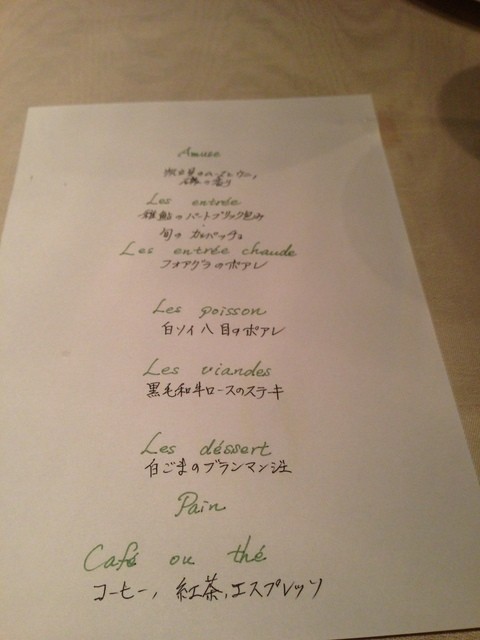 Amuse
の香り
Les entrée
のパートブリック包み
旬のカルパッチョ
Les entrée chaude
フォアグラのポアレ
Les poisson
白ソイ八目のポアレ
Les viandes
黒毛和牛ロースのステキ
Les déssert
白ごまのブランマンジェ
Pain
Café ou thé
コーヒー, 紅茶, エスプレッソ